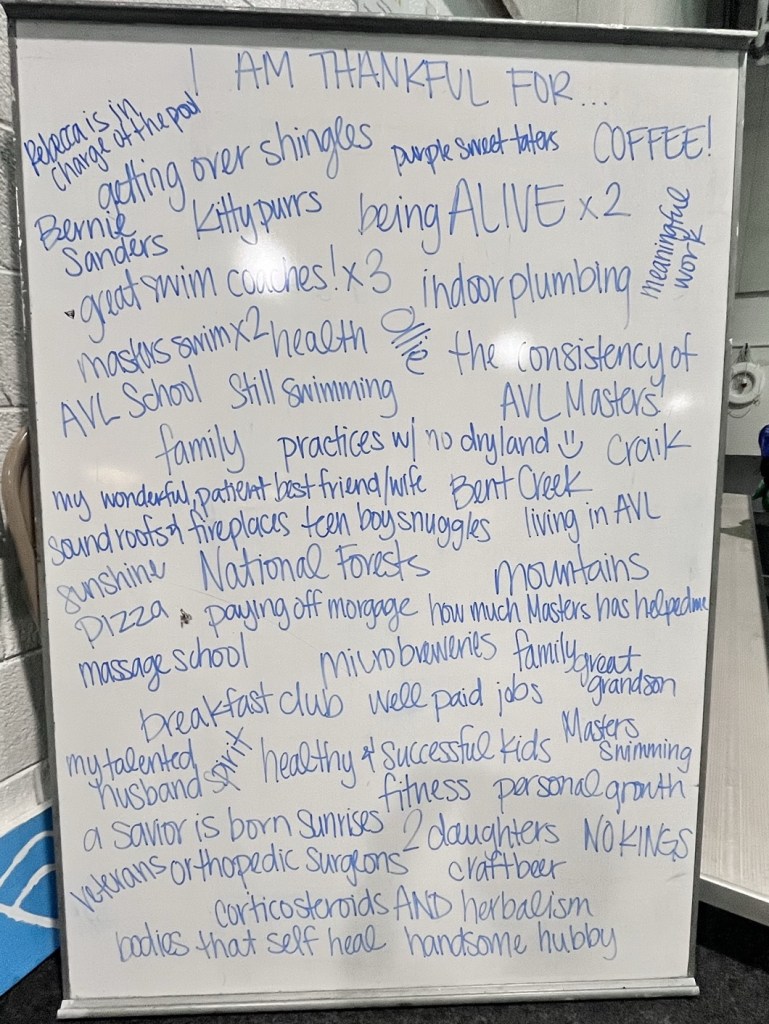 I AM THANKFUL FOR...
Rebecca is in
charge of the pool
getting over shingles
purple sweet taters
COFFEE!
Bernie
Sanders
Kitty purrs
being ALIVE x 2
meaningful
work
great swim coaches! x3
indoor plumbing
masters swim x2
health
Ollie
the consistency of
AVL Masters!
AVL School
Still swimming
family
practices w/ no dryland
Craik
my wonderful, patient best friend/wife
Bent Creek
sound roofs & fireplaces
teen boy snuggles
living in AVL
sunshine
National Forests
mountains
pizza
paying off morgage
how much Masters has helped me
massage school
microbreweries
family
great
grandson
breakfast club
well paid jobs
my talented
husband
spirit
healthy & successful kids
Masters
Swimming
fitness
personal growth
a savior is born
sunrises
2 daughters
NO KINGS
veterans
orthopedic surgeons
craft beer
corticosteroids AND herbalism
bodies that self heal
handsome hubby